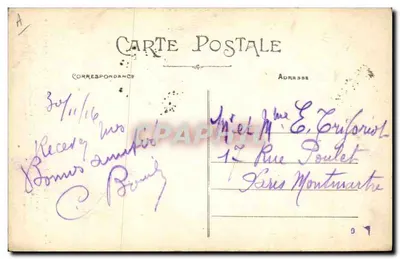 A
CARTE POSTALE
CORRESPONDANCE
ADRESSE
30/11/16
Recevez nos
Bonnes amitiés
C
Mr et Mme E.
17 Rue Poulet
Paris Montmartre